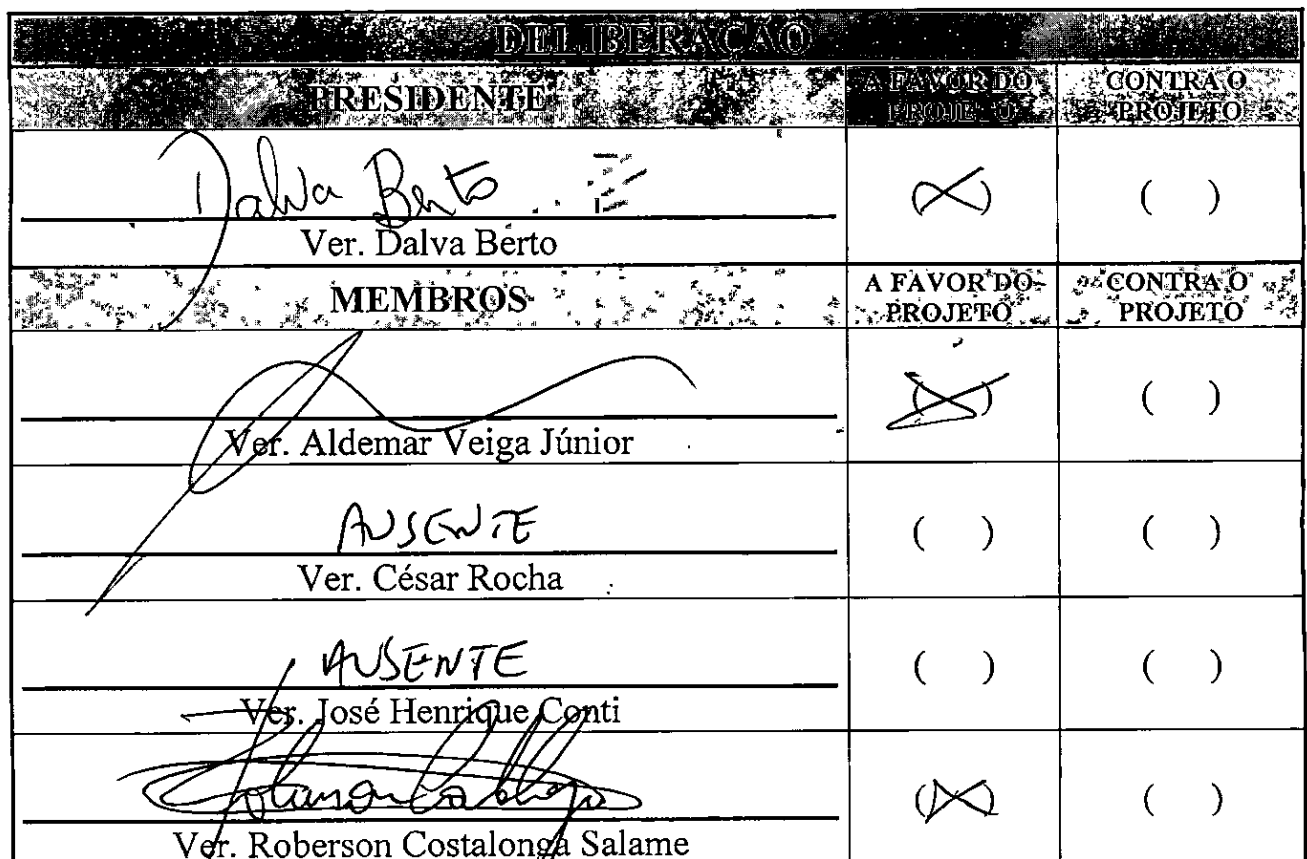 DELIBERAÇÃO
PRESIDENTE
A FAVOR DO PROJETO
CONTRA O PROJETO
Dalva Berto
( X )
( )
Ver. Dalva Berto
MEMBROS
A FAVOR DO PROJETO
CONTRA O PROJETO
( X )
( )
Ver. Aldemar Veiga Júnior
AUSENTE
( )
( )
Ver. César Rocha
AUSENTE
( )
( )
Ver. José Henrique Conti
( X )
( )
Ver. Roberson Costalonga Salame